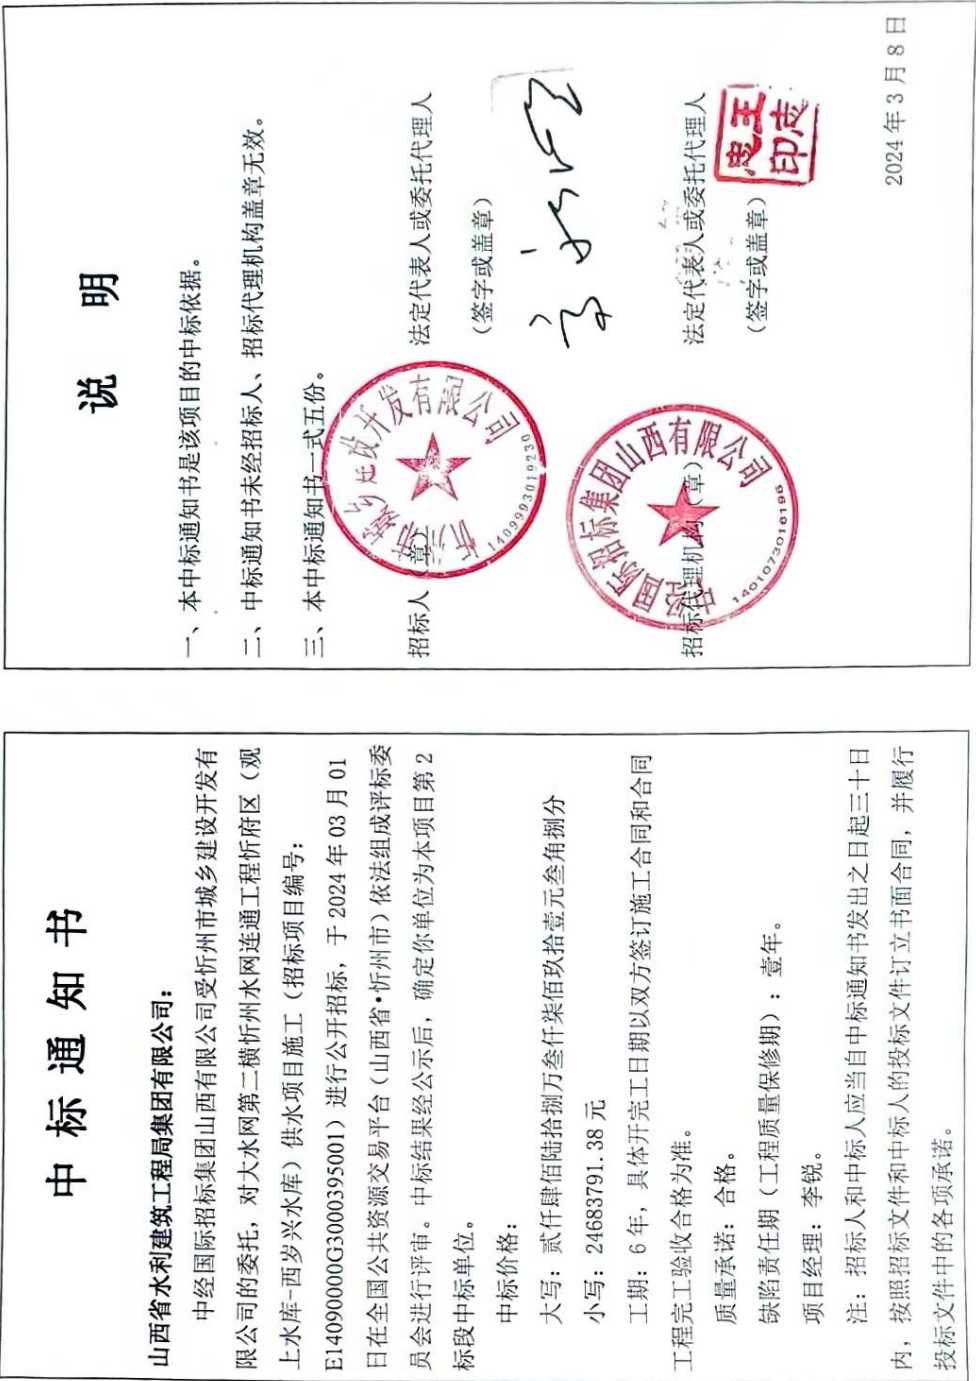 中标通知书
山西省水利建筑工程局集团有限公司：
中经国际招标集团山西有限公司受忻州市城乡建设开发有
限公司的委托，对大水网第二横忻州水网连通工程忻府区（观
上水库-西岁兴水库）供水项目施工（招标项目编号：
E1409000G30003950​01）进行公开招标，于 2024 年 03 月 01
日在全国公共资源交易平台（山西省•忻州市）依法组成评标委
员会进行评审。中标结果经公示后，确定你单位为本项目第 2
标段中标单位。
中标价格：
大写：贰仟肆佰陆拾捌万叁仟柒佰玖拾壹元叁角捌分
小写：24683791.38 元
工期：6 年，具体开完工日期以双方签订施工合同和合同
工程完工验收合格为准。
质量承诺：合格。
缺陷责任期（工程质量保修期）：壹年。
项目经理：李锐。
注：招标人和中标人应当自中标通知书发出之日起三十日
内，按照招标文件和中标人的投标文件订立书面合同，并履行
投标文件中的各项承诺。
说 明
一、本中标通知书是该项目的中标依据。
二、中标通知书未经招标人、招标代理机构盖章无效。
三、本中标通知书一式五份。
招标人（章） 法定代表人或委托代理人
（签字或盖章）
忻州市城乡建设开发有限公司
1409993019230
招标代理机构（章） 法定代表人或委托代理人
（签字或盖章）
中经国际招标集团山西有限公司
1401073016196
王志忠印
2024 年 3 月 8 日